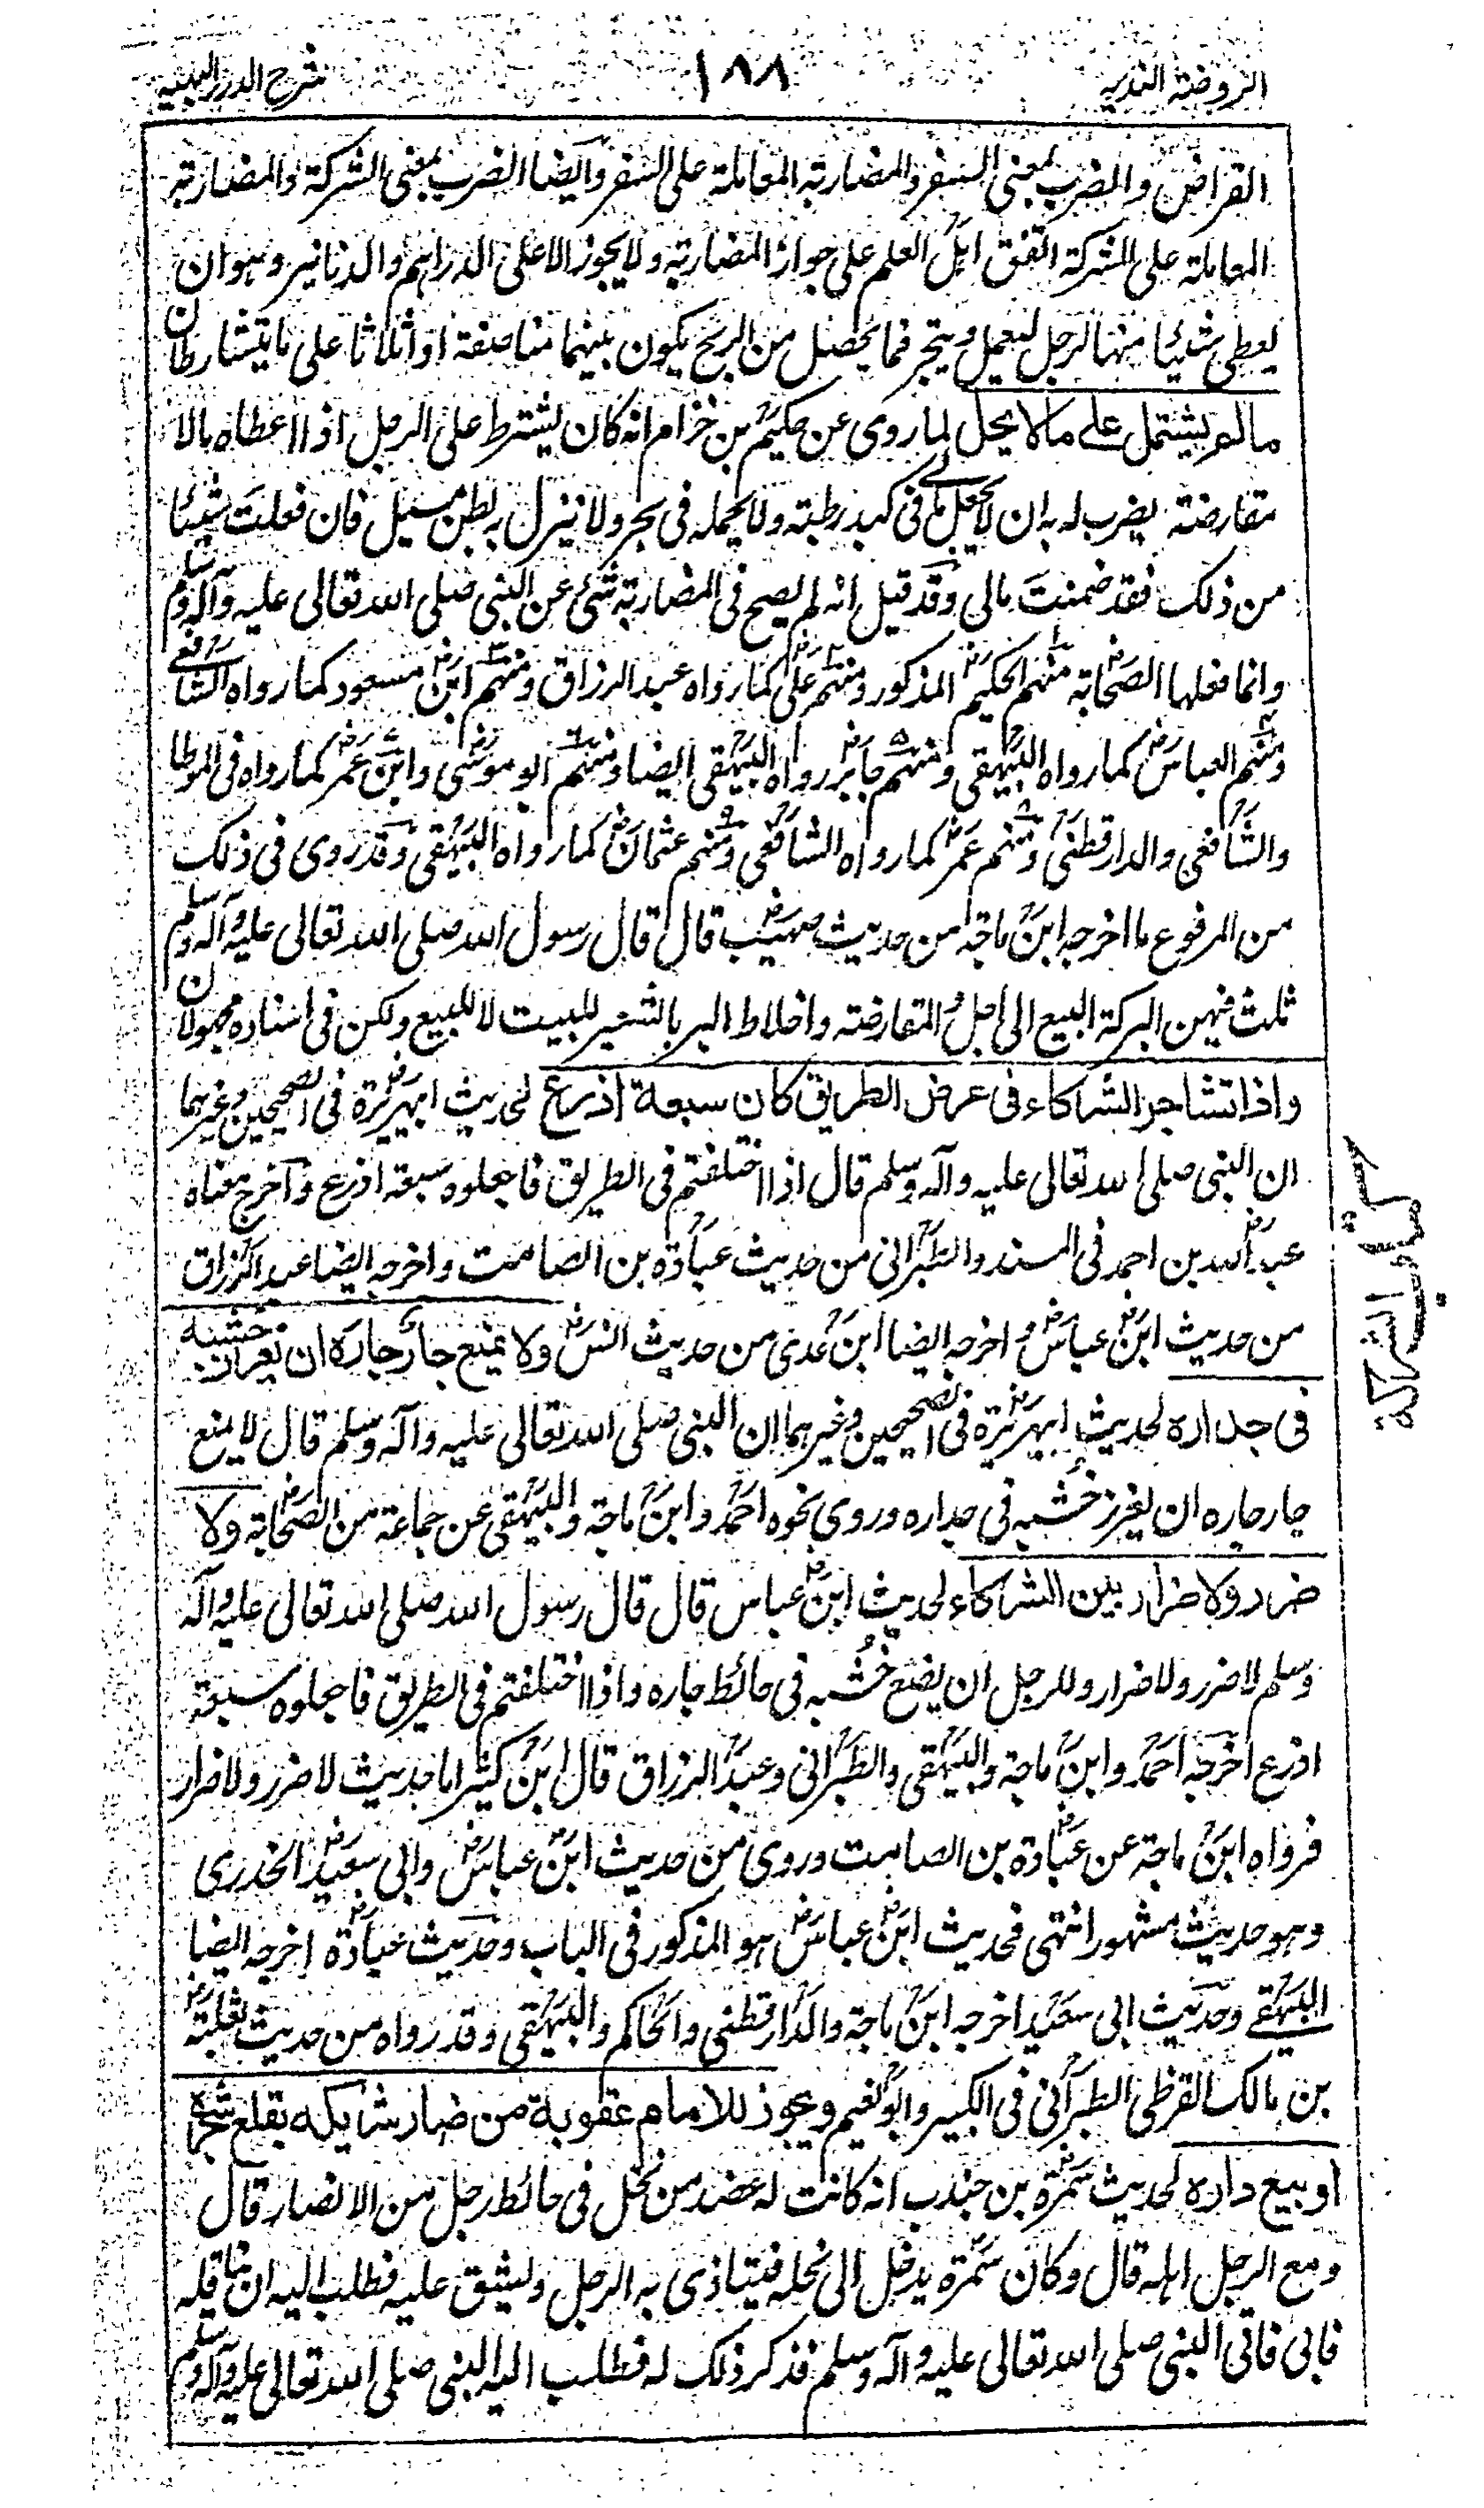 الروضة الندية
١٨٨
شرح الدرر البهية
القراض والضرب بمعنى السفر والمضاربة المعاملة على السفر وايضا الضرب بمعنى الشركة والمضاربة
المعاملة على الشركة اتفق اهل العلم على جواز المضاربة ولا يجوز الا على الدراهم والدنانير وهو ان
يعطى شيئا منها لرجل ليعمل ويتجر فما يحصل من الربح يكون بينهما مناصفة او اثلاثا على ما يتشارطان
مالم يشتمل على مالا يحل لما روى عن حكيم بن خزام انه كان يشترط على الرجل اذا اعطاه مالا
مقارضة يضرب له به ان لا تجعل مالى فى كبد رطبة ولا يحمله فى بحر ولا ينزل به بطن مسيل فان فعلت شيئا
من ذلك فقد ضمنت مالى وقد قيل انه لم يصح فى المضاربة شئ عن النبى صلى الله تعالى عليه وآله وسلم
وانما فعلها الصحابة منهم الحكيم المذكور ومنهم على كما رواه عبد الرزاق ومنهم ابن مسعود كما رواه الشافعى
ومنهم العباس كما رواه البيهقى ومنهم جابر رواه البيهقى ايضا ومنهم ابو موسى وابن عمر كما رواه فى الموطا
والشافعى والدارقطنى ومنهم عمر كما رواه الشافعى ومنهم عثمان كما رواه البيهقى وقد روى فى ذلك
من المرفوع ما اخرجه ابن ماجة من حديث صهيب قال قال رسول الله صلى الله تعالى عليه وآله وسلم
ثلث فيهن البركة البيع الى اجل والمقارضة واخلاط البر بالشعير للبيت لا للبيع ولكن فى اسناده مجهولان
واذا تشاجر الشركاء فى عرض الطريق كان سبعة اذرع لحديث ابيهريرة فى الصحيحين وغيرهما
ان النبى صلى الله تعالى عليه وآله وسلم قال اذا اختلفتم فى الطريق فاجعلوه سبعة اذرع واخرج معناه
عبد الله بن احمد فى المسند والطبرانى من حديث عبادة بن الصامت واخرجه ايضا عبد الرزاق
من حديث ابن عباس واخرجه ايضا ابن عدى من حديث انس ولا يمنع جار جاره ان يغرز خشبه
فى جداره لحديث ابيهريرة فى الصحيحين وغيرهما ان النبى صلى الله تعالى عليه وآله وسلم قال لا يمنع
جار جاره ان يغرز خشبه فى جداره وروى نحوه احمد وابن ماجة والبيهقى عن جماعة من الصحابة ولا
ضرر ولا ضرار بين الشركاء لحديث ابن عباس قال قال رسول الله صلى الله تعالى عليه وآله
وسلم لا ضرر ولا ضرار وللرجل ان يضع خشبه فى حائط جاره واذا اختلفتم فى الطريق فاجعلوه سبعة
اذرع اخرجه احمد وابن ماجة والبيهقى والطبرانى وعبد الرزاق قال ابن كثير اما حديث لا ضرر ولا ضرار
فرواه ابن ماجة عن عبادة بن الصامت وروى من حديث ابن عباس وابى سعيد الخدرى
وهو حديث مشهور انتهى فحديث ابن عباس هو المذكور فى الباب وحديث عبادة اخرجه ايضا
البيهقى وحديث ابى سعيد اخرجه ابن ماجة والدارقطنى والحاكم والبيهقى وقد رواه من حديث ثعلبة
بن مالك القرظى الطبرانى فى الكبير وابو نعيم ويجوز للامام عقوبة من ضار شريكه بقلع شجره
او بيع داره لحديث سمرة بن جندب انه كانت له عضد من نخل فى حائط رجل من الانصار قال
ومع الرجل اهله قال وكان سمرة يدخل الى نخله فيتاذى به الرجل ويشق عليه فطلب اليه ان يناقله
فابى فاتى النبى صلى الله تعالى عليه وآله وسلم فذكر ذلك له فطلب اليه النبى صلى الله تعالى عليه وآله وسلم
كتاب الشركة